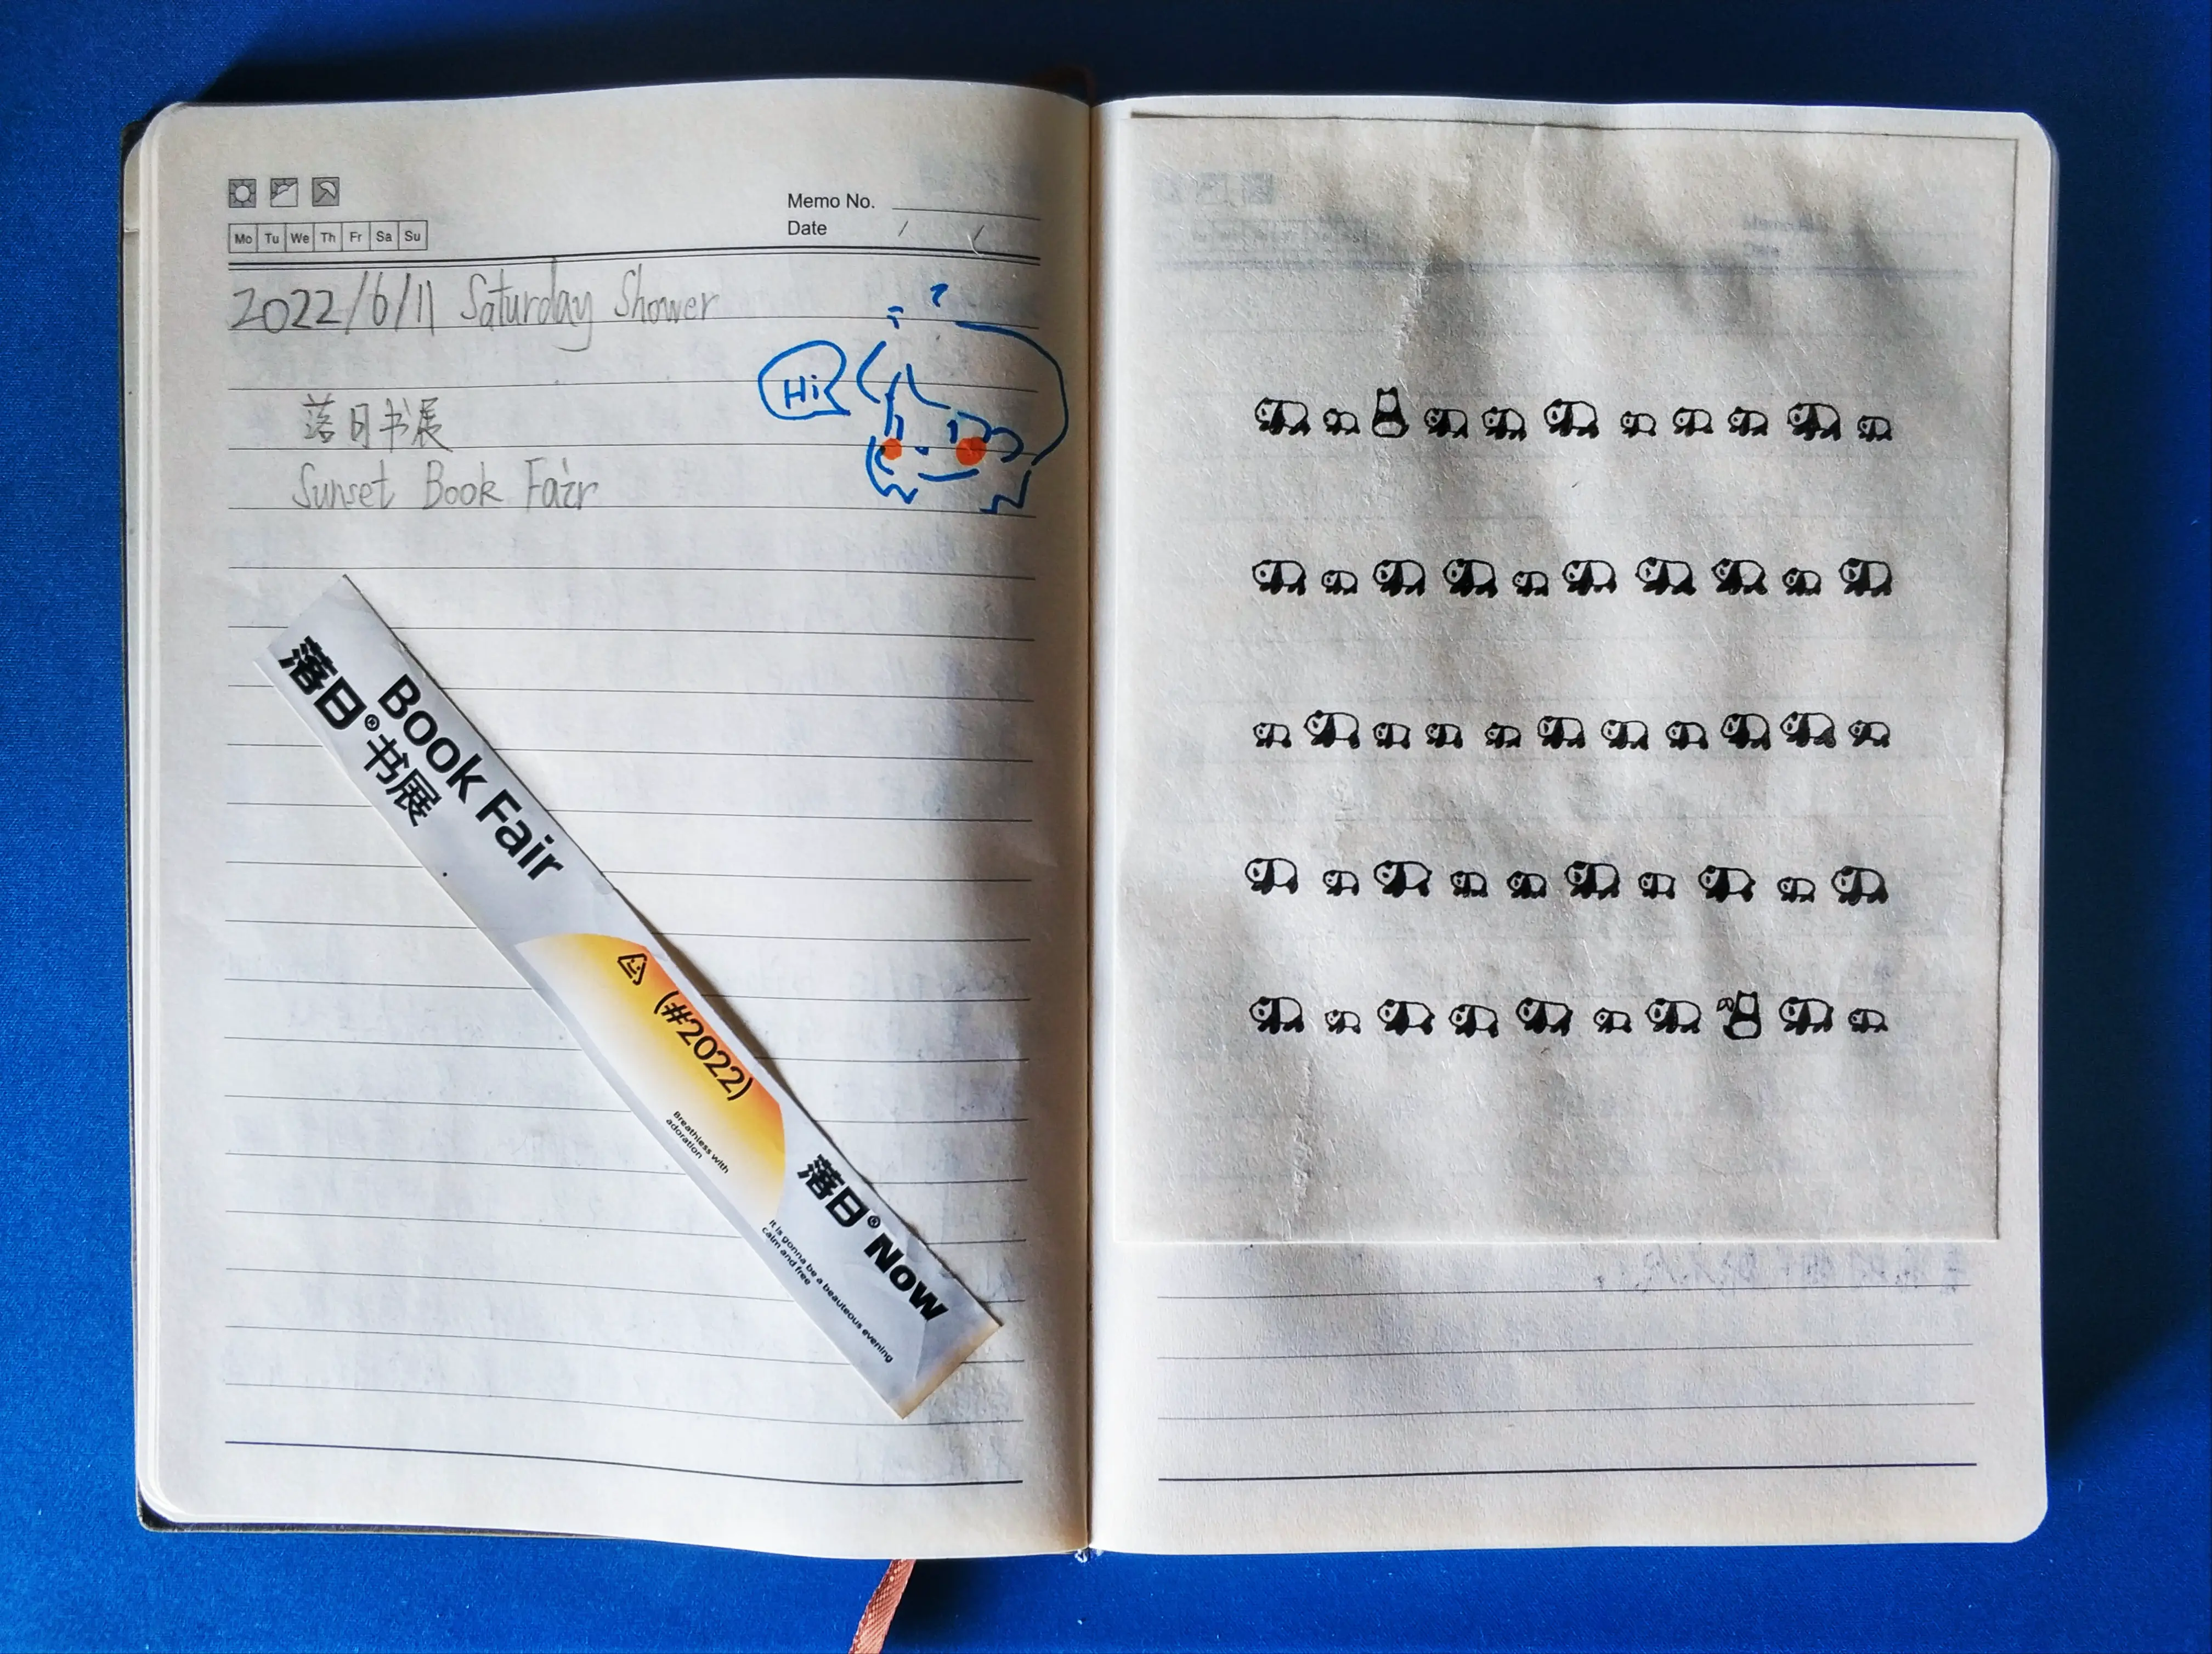 Memo No.
Mo Tu We Th Fr Sa Su
Date / /
2022/6/11 Saturday Shower
Hi
落日书展
Sunset Book Fair
Book Fair
落日®书展
(#2022)
Breathless with
adoration
落日® Now
It is gonna be a beauteous evening
calm and free